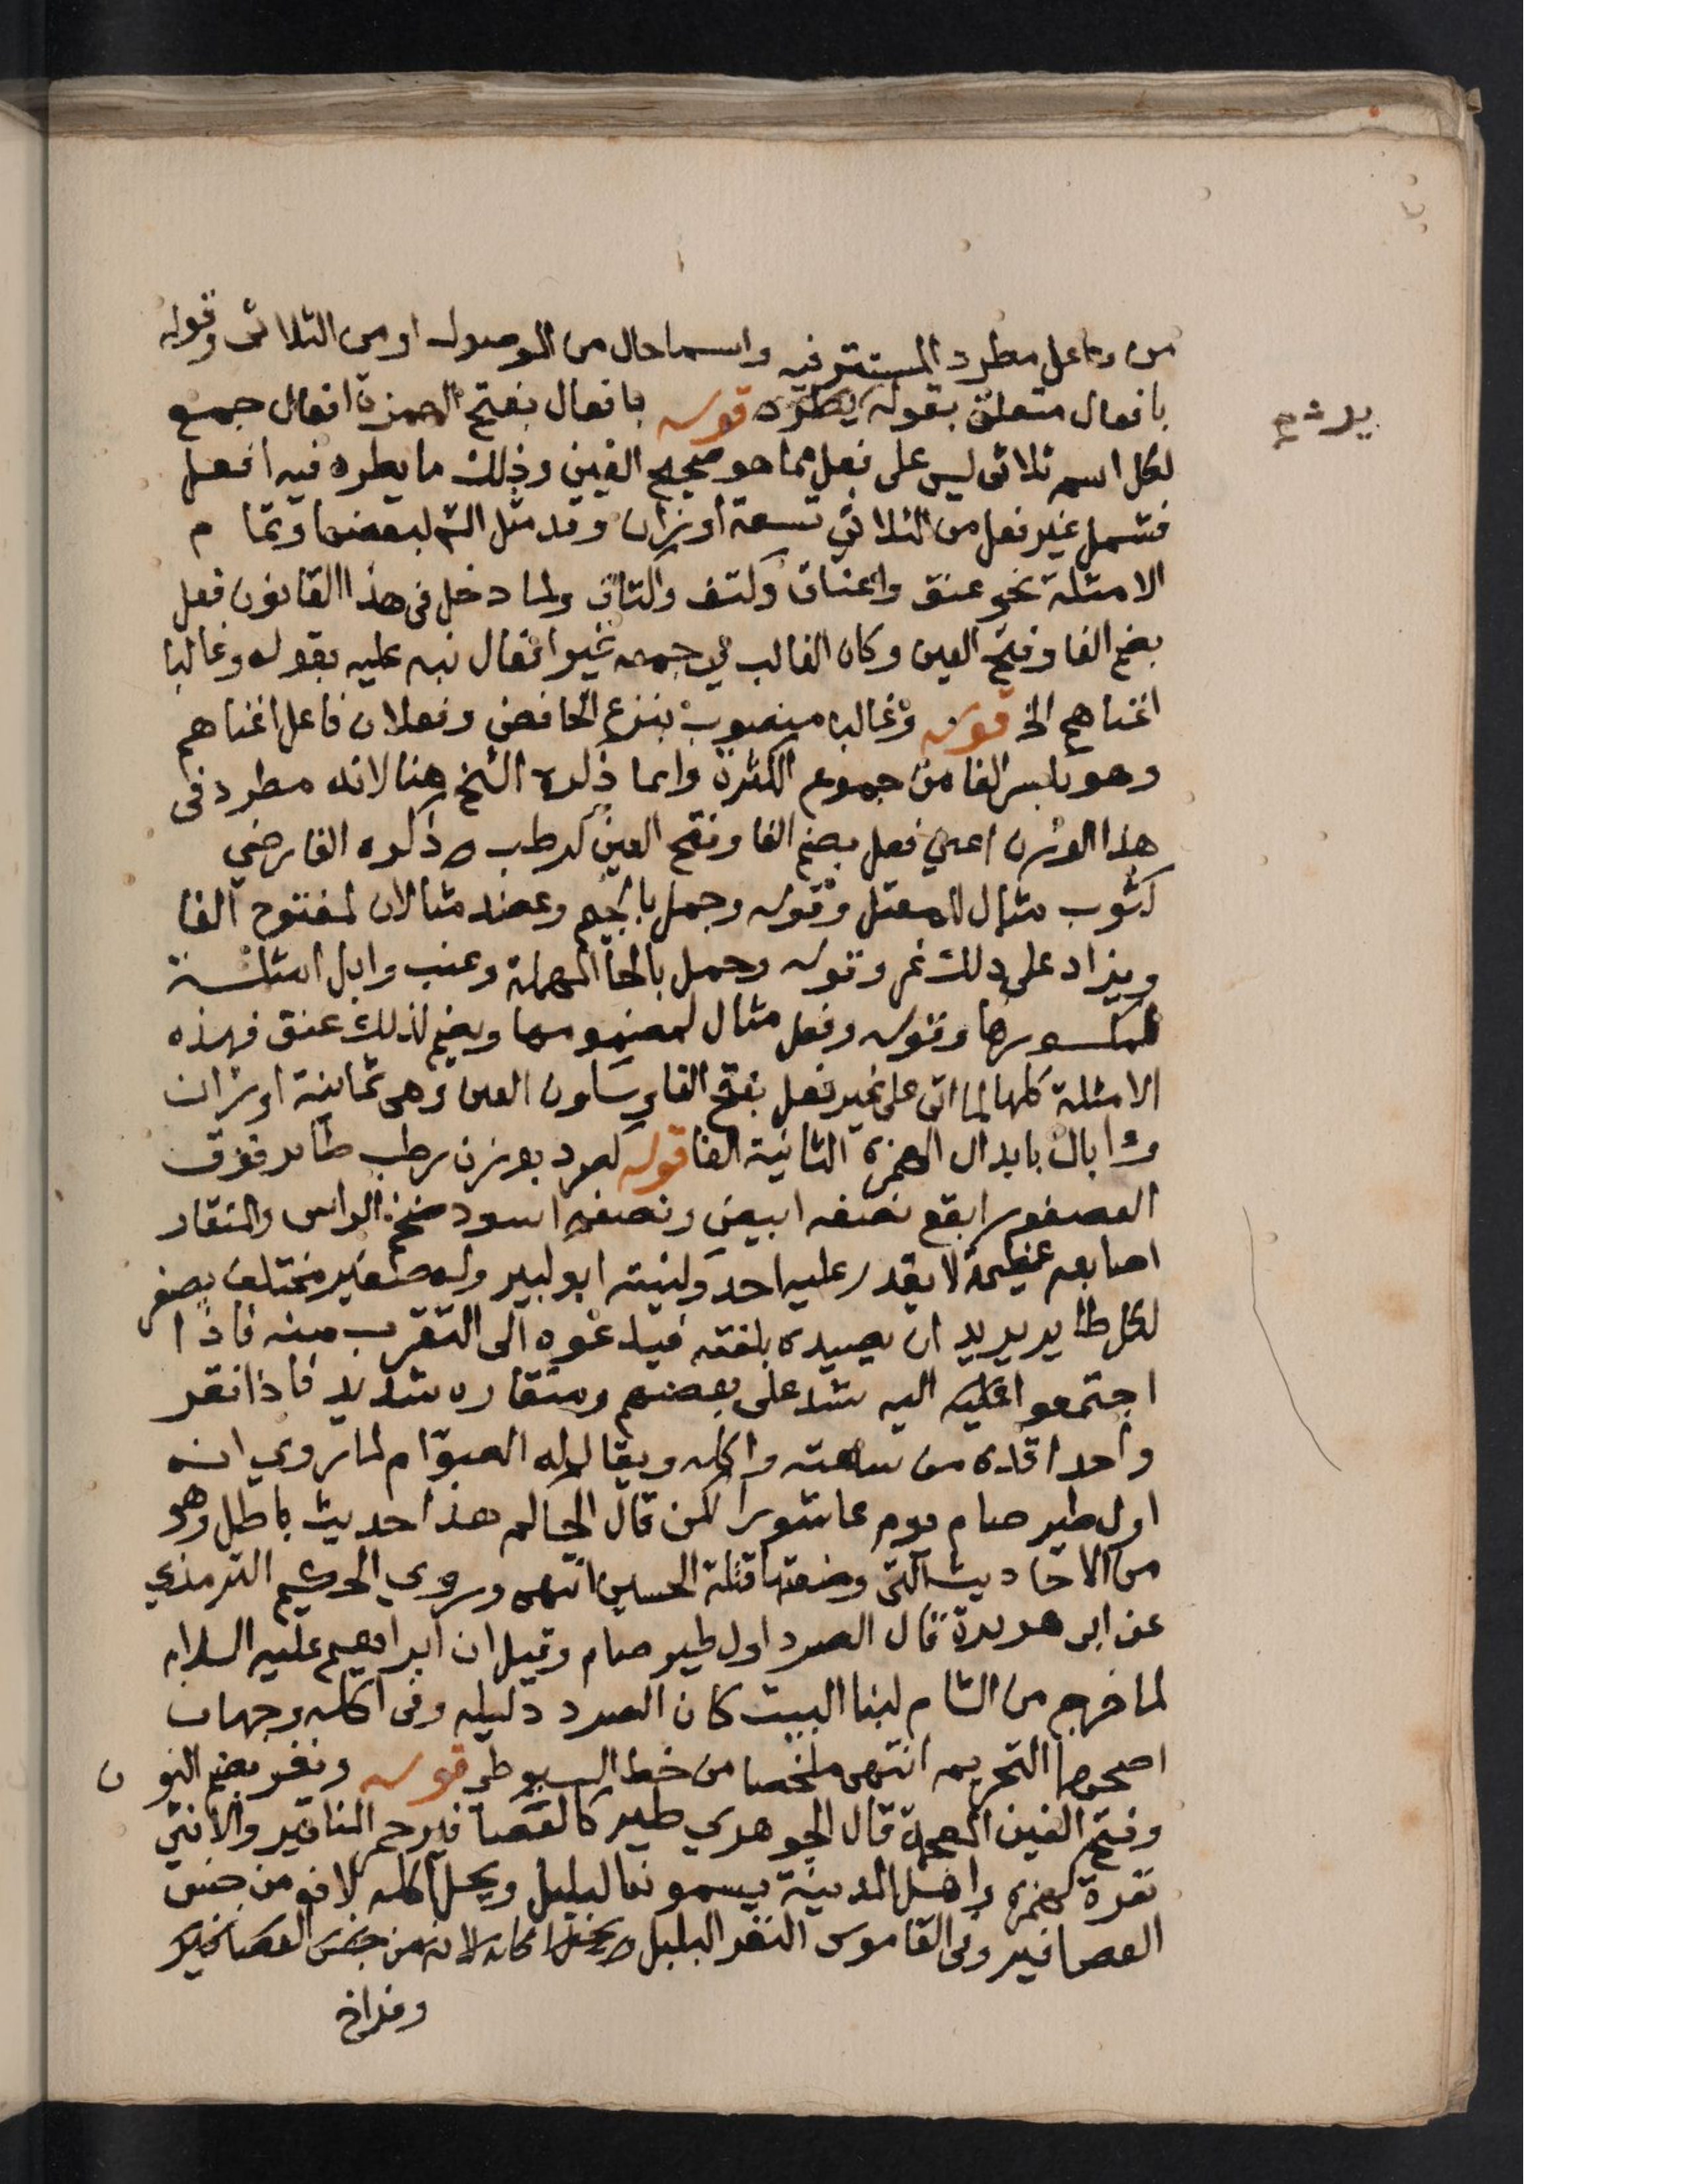 من وفاعل مطرد المستتر فيه واسما حال من الموصول او من الثلاثى وقوله
بافعال متعلق بقوله يطرد قوله بافعال بفتح الهمزة افعال جمع
لكل اسم ثلاثى ليس على فعل مما هو صحيح العين وذلك ما يطرد فيه افعل
فتشمل غير فعل من الثلاثي تسعة أوزان وقد مثل الش لبعضها وتمام
الامثلة نحو عنق واعناق وكتف واكتاف ولما دخل فى هذا القانون فعل
بضم الفا وفتح العين وكان الغالب في جمعه غير افعال نبه عليه بقوله وغالبا
اغناهم الخ قوله وغالبا منصوب بنزع الخافض وفعلان فاعل اغناهم
وهو بكسر الفا من جموع الكثرة وانما ذكره الشخ هنا لانه مطرد فى
هذا الوزن اعني فعل بضم الفا وفتح العين كرطب ص ذكره الفارضي
كثوب مثال للمعتل وقوله وجمل بالجيم وعضد مثالان لمفتوح الفا
ويزاد على ذلك نمر وقوله وحمل بالحا المهملة وعنب وابل امثلة
لمكسورها وقوله وقفل مثال لمضمومها ويضم لذلك عنق فهذه
الامثلة كلها لما اتى على غير فعل بفتح الفا وسكون العين وهى ثمانية اوزان
واابال بابدال الهمزة الثانية الفا قوله كصرد بوزن رطب طاير فوق
العصفور ابقع نصفه ابيض ونصفه اسود ضخم الراس والمنقار
اصابعه عظيمة لا يقدر عليه احد وكنيته ابو كبير وله صفير مختلف يصفر
لكل طاير يريد ان يصيده بلغته فيدعوه الى التقرب منه فاذا
اجتمعوا اليه شد على بعضهم ومنقاره شديد فاذا نقر
واحدا قده من ساعته واكله ويقال له الصوام لما روي انه
اول طير صام يوم عاشورا لكن قال الحاكم هذا حديث باطل وهو
من الاحاديث التى وضعتها قتلة الحسين انتهى وروي الحكيم الترمذي
عن ابى هريرة قال الصرد اول طير صام وقيل ان ابراهيم عليه السلام
لما خرج من الشام لبنا البيت كان الصرد دليله وفى اكله وجهان
اصحهما التحريم انتهى ملخصا من خط السيوطى قوله ونغر بضم النون
وفتح الغين المعجمة قال الجوهري طير كالعصافير حمر المناقير والانثى
نغرة كهمزة واهل المدينة يسمونها البلبل ويحل اكله لانه من جنس
العصافير وفى القاموس النغر البلبل ص يحل اكله لانه من جنس العصافير
وفراخ